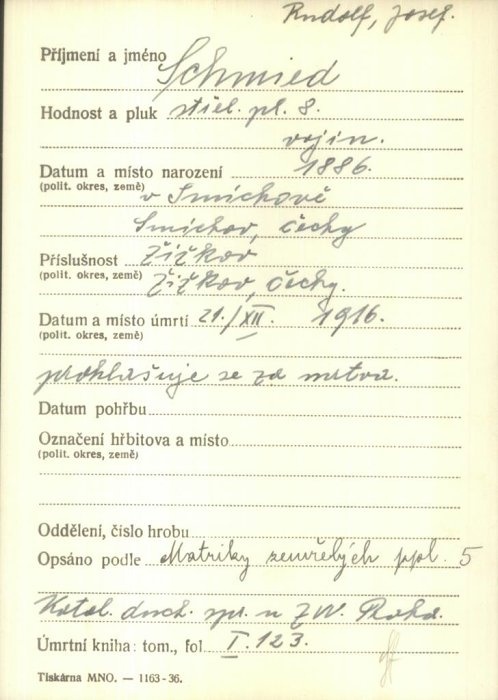 Rudolf, Josef.
Příjmení a jméno Schmied
Hodnost a pluk střel. pl. 8.
vojín.
Datum a místo narození 1886.
(polit. okres, země) v Smíchově
Smíchov, čechy
Příslušnost Žižkov
(polit. okres, země) Žižkov, čechy.
Datum a místo úmrtí 21./XII. 1916.
(polit. okres, země)
prohlašuje se za mrtva.
Datum pohřbu
Označení hřbitova a místo
(polit. okres, země)
Oddělení, číslo hrobu
Opsáno podle Matriky zemřelých ppl. 5
Katol. duch. spr. u ZW. Praha.
Úmrtní kniha: tom., fol. I. 123.
Tiskárna MNO. — 1163-36.